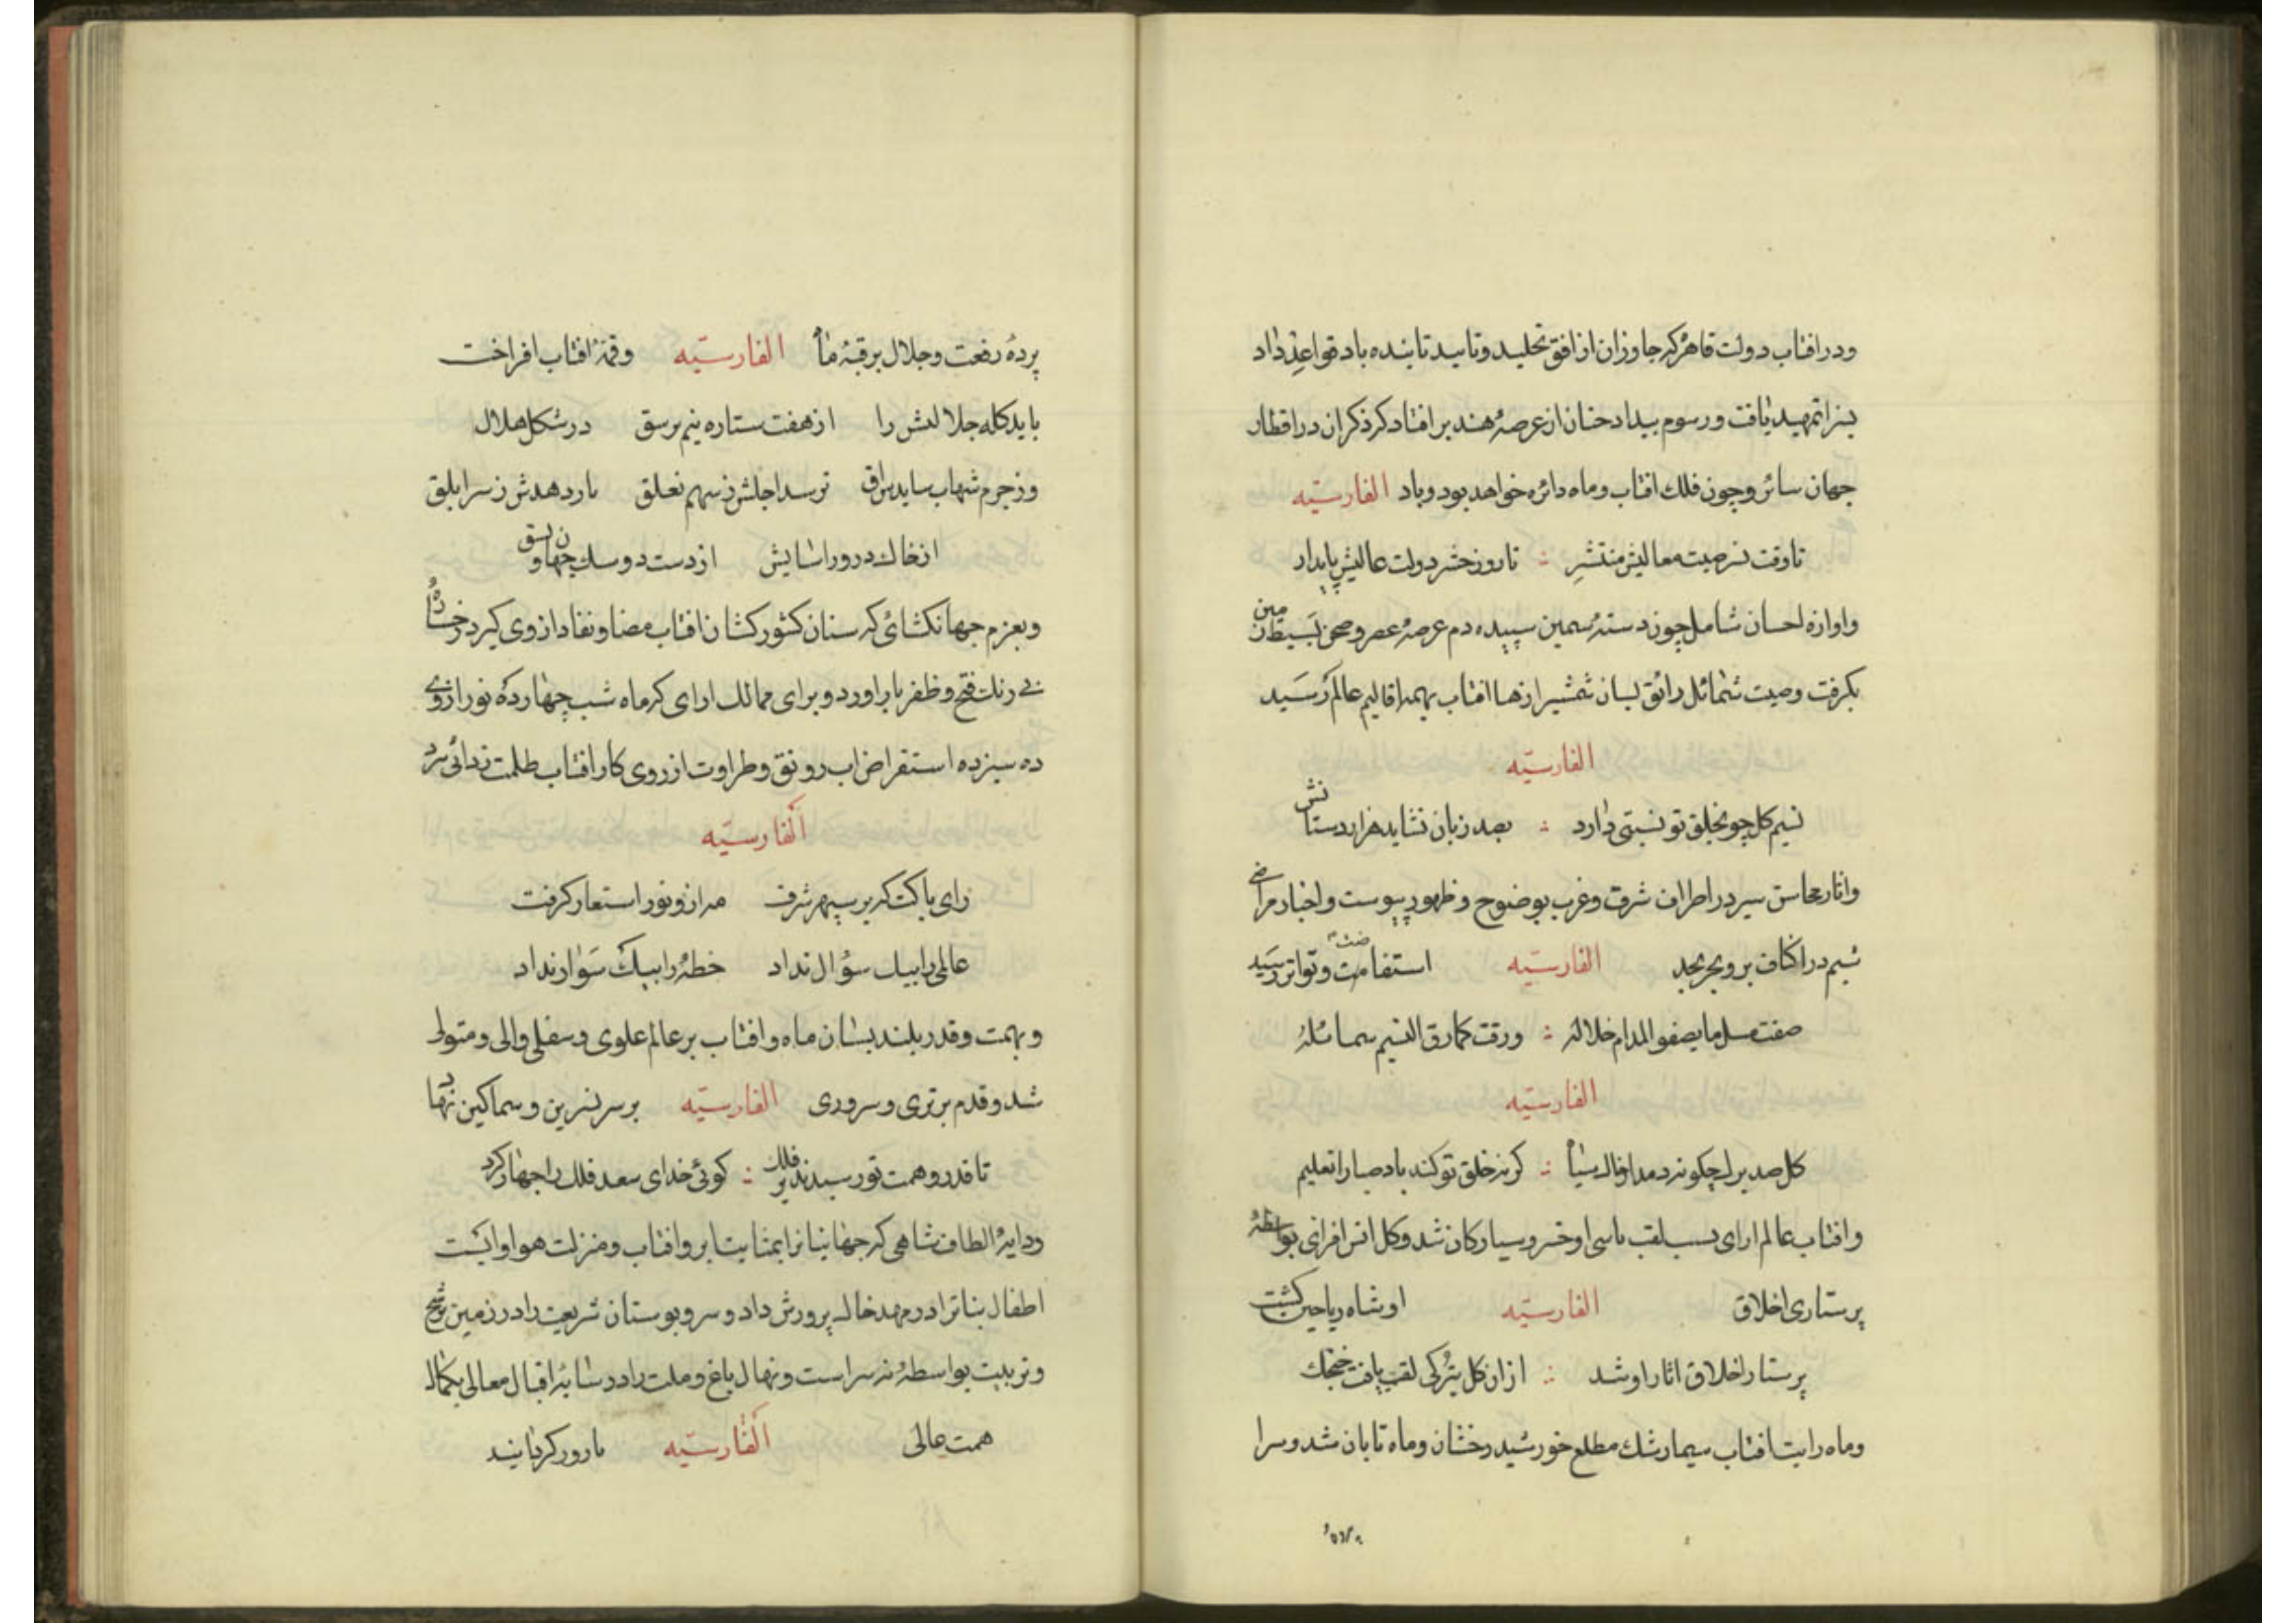 ودر افتاب دولت قاهره که جاوزان از افق تخلید وتایید تابنده باد قواعد داد
بنزا تمهید یافت ورسوم بیداد خنان از عرصهٔ هند بر افتاد کرذکران در اقطار
جهان سائر وچون فلك افتاب وماه دائره خواهد بود وباد الفارسیّه
تا وقت نشر صیت معالیش منتشر ∴ تا روز حشر دولت عالیش پایدار
واوازه احسان شامل چون دستهٔ سیمین سپیده دم عرصهٔ عصر وصحن بسیط زمین
بکرفت وصیت شمائل رائق لسان شمشیر ازها افتاب بهمه اقالیم عالم رسید
الفارسیّه
نسیم کل چو بخلق تو نسبتی دارد ∴ بصد زبان نشاید هزار دستانش
واثار محاسن سیر در اطراف شرق وغرب بوضوح وظهور پیوست واخبار مراضی
شیم در اکناف بر وبحر بحد الفارسیّه استفاضت وتواتر رسید
صفت مثل ما یصفو المدام خلاله ∴ ورقت کما رق النسیم شمائله
الفارسیّه
کل صد برك چکونه دمد از خاك ∴ کر نه خلق تو کند باد صبا را تعلیم
وافتاب عالم ارای بسبب لقب او خسرو سیارکان شد وکل انس افزای بواسطهٔ
پرستاری اخلاق الفارسیّه او شاه ریاحین کشت
پرستار اخلاق اثار او شد ∴ ازان کل بترکی لقب یافت خجك
وماه رایت افتاب سیمارشك مطلع خورشید رخشان وماه تابان شد وسرا
پردهٔ رفعت وجلال بر قبهٔ ماه الفارسیّه وقمهٔ افتاب افراخت
باید کله جلالش را از هفت ستاره نیم برسق در شکل هلال
وز جرم شهاب ساید براق ترسد اجلش ز سهم تعلق بار دهدش ز سر ابلق
از خاك در ور اسایش از دست دو سك جهان
وبعزم جهانکشائی که سنان کشور کشا زافتاب مضا ونفاد ازوی کیرد رخشا
بی رنك فتح وظفر باز اورد وبرای ممالك ارای که ماه شب چهارده نور ازوی
ده سیزده استقراض اب رونق وطراوت از روی کار افتاب ظلمت زدائی برد
الفارسیّه
رای پاکت که بر سپهر شرف مه ازو نور استعار کرفت
عالمی را بیك سؤال نداد خطهٔ را بیك سوار نداد
وبهمت وقدر بلند بسان ماه وافتاب بر عالم علوی وسفلی والی ومتولی
شد وقدم برتری وسروری الفارسیّه بر سر نسرین وسماکین نهاد
تا قدر وهمت تو رسیدند بر فلك ∴ کوئی خدای سعد فلك را جهار کرد
ودایهٔ الطاف شاهی که جهانیانرا بمثابت ابر وافتاب ومنزلت هوا وابست
اطفال بناترا در مهد خاك پرورش داد وسرو بوستان شریعت را در زمین ترشح
وتربیت بواسطهٔ نه سراست ونهال باغ وملت را در سایهٔ اقبال معالی بکمال
همت عالی الفارسیّه بارور کردانید